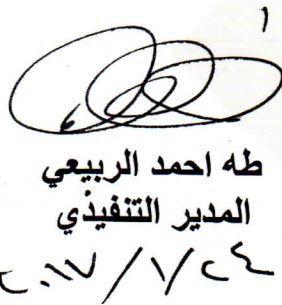 طه احمد الربيعي
المدير التنفيذي
٢٠١٧/٧/٢٤